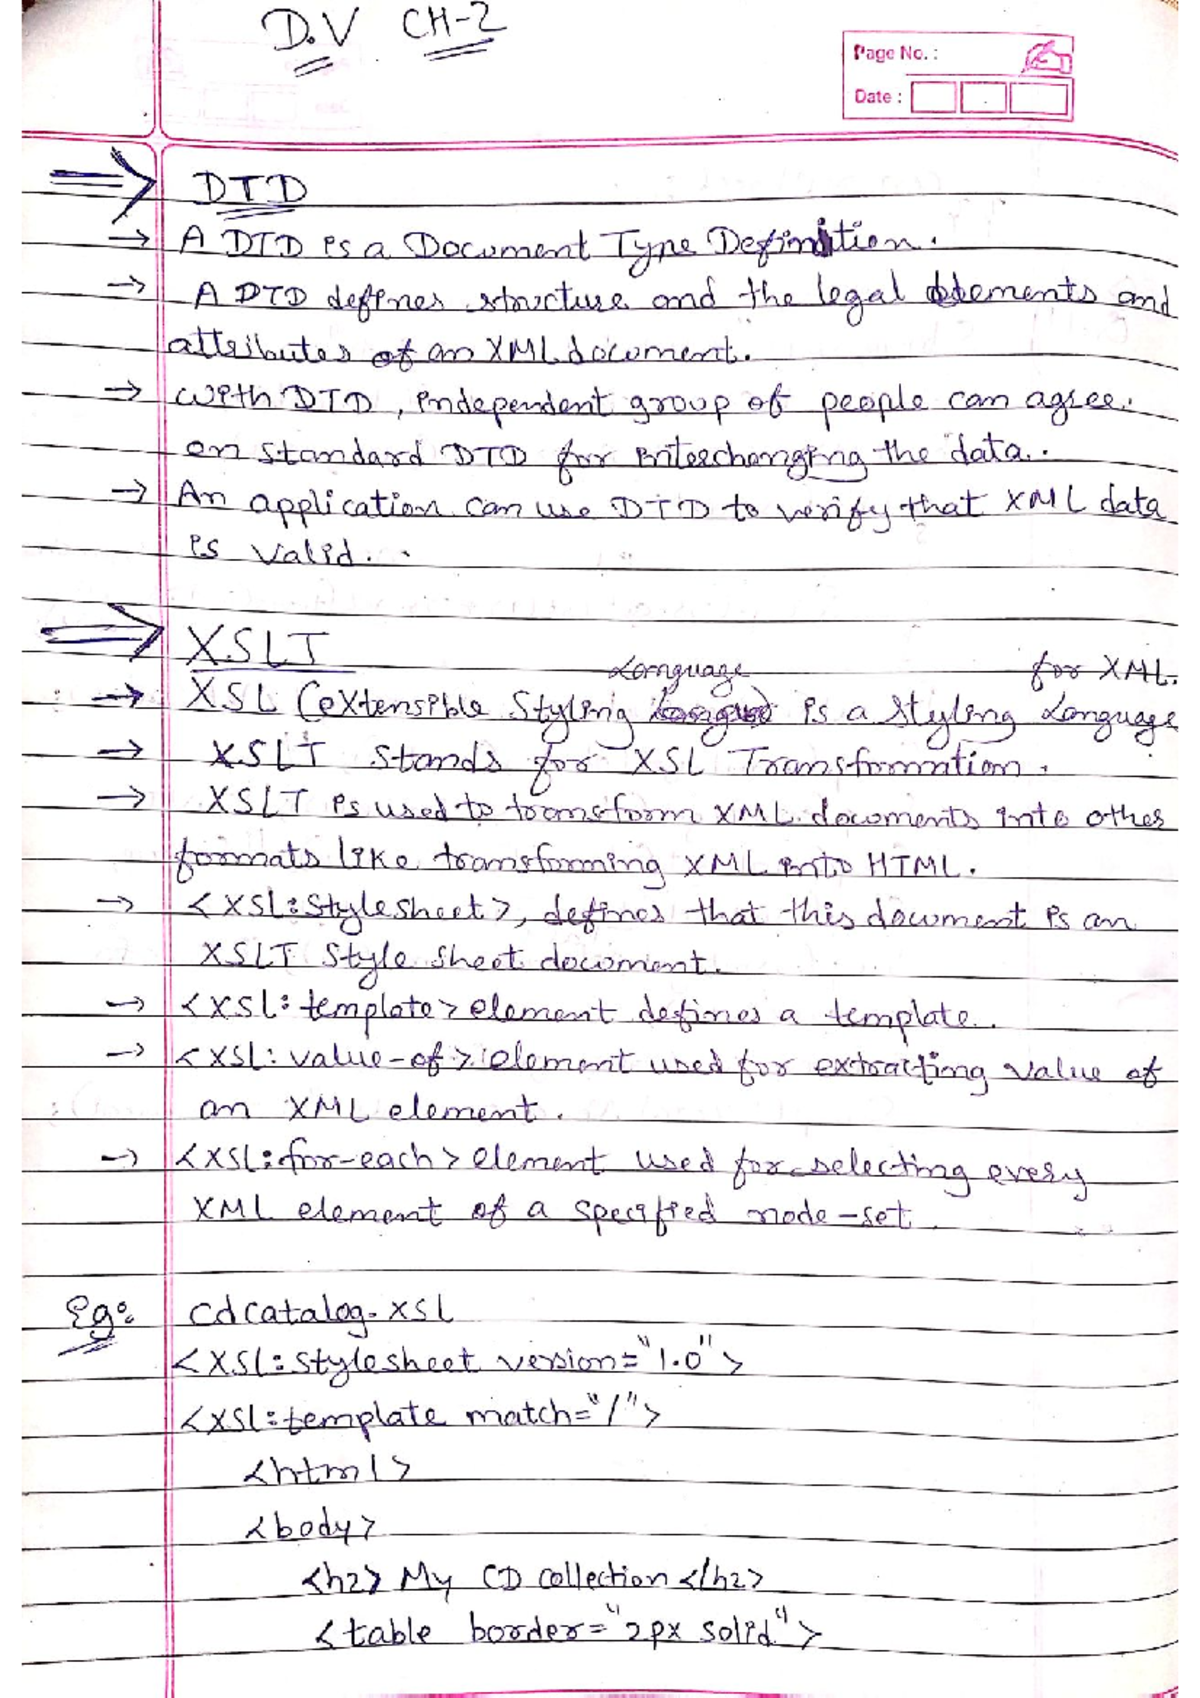 D.V CH-2
Page No. :
Date :
⇒ DTD
→ A DTD is a Document Type Definition.
→ A DTD defines structure and the legal elements and
attributes of an XML document.
→ with DTD, independent group of people can agree
on standard DTD for interchanging the data.
→ An application can use DTD to verify that XML data
is valid.
⇒ XSLT
→ XSL (eXtensible Styling Language) is a styling Language for XML.
→ XSLT stands for XSL Transformation.
→ XSLT is used to transform XML documents into other
formats like transforming XML into HTML.
→ <XSl:Stylesheet>, defines that this document is an
XSLT Style sheet document.
→ <xsl:template> element defines a template.
→ <xsl:value-of> element used for extracting value of
an XML element.
→ <xsl:for-each> element used for selecting every
XML element of a specified node-set.
Eg: cdcatalog.xsl
<xsl:stylesheet version="1.0">
<xsl:template match="/">
<html>
<body>
<h2> My CD collection </h2>
<table border="2px solid">